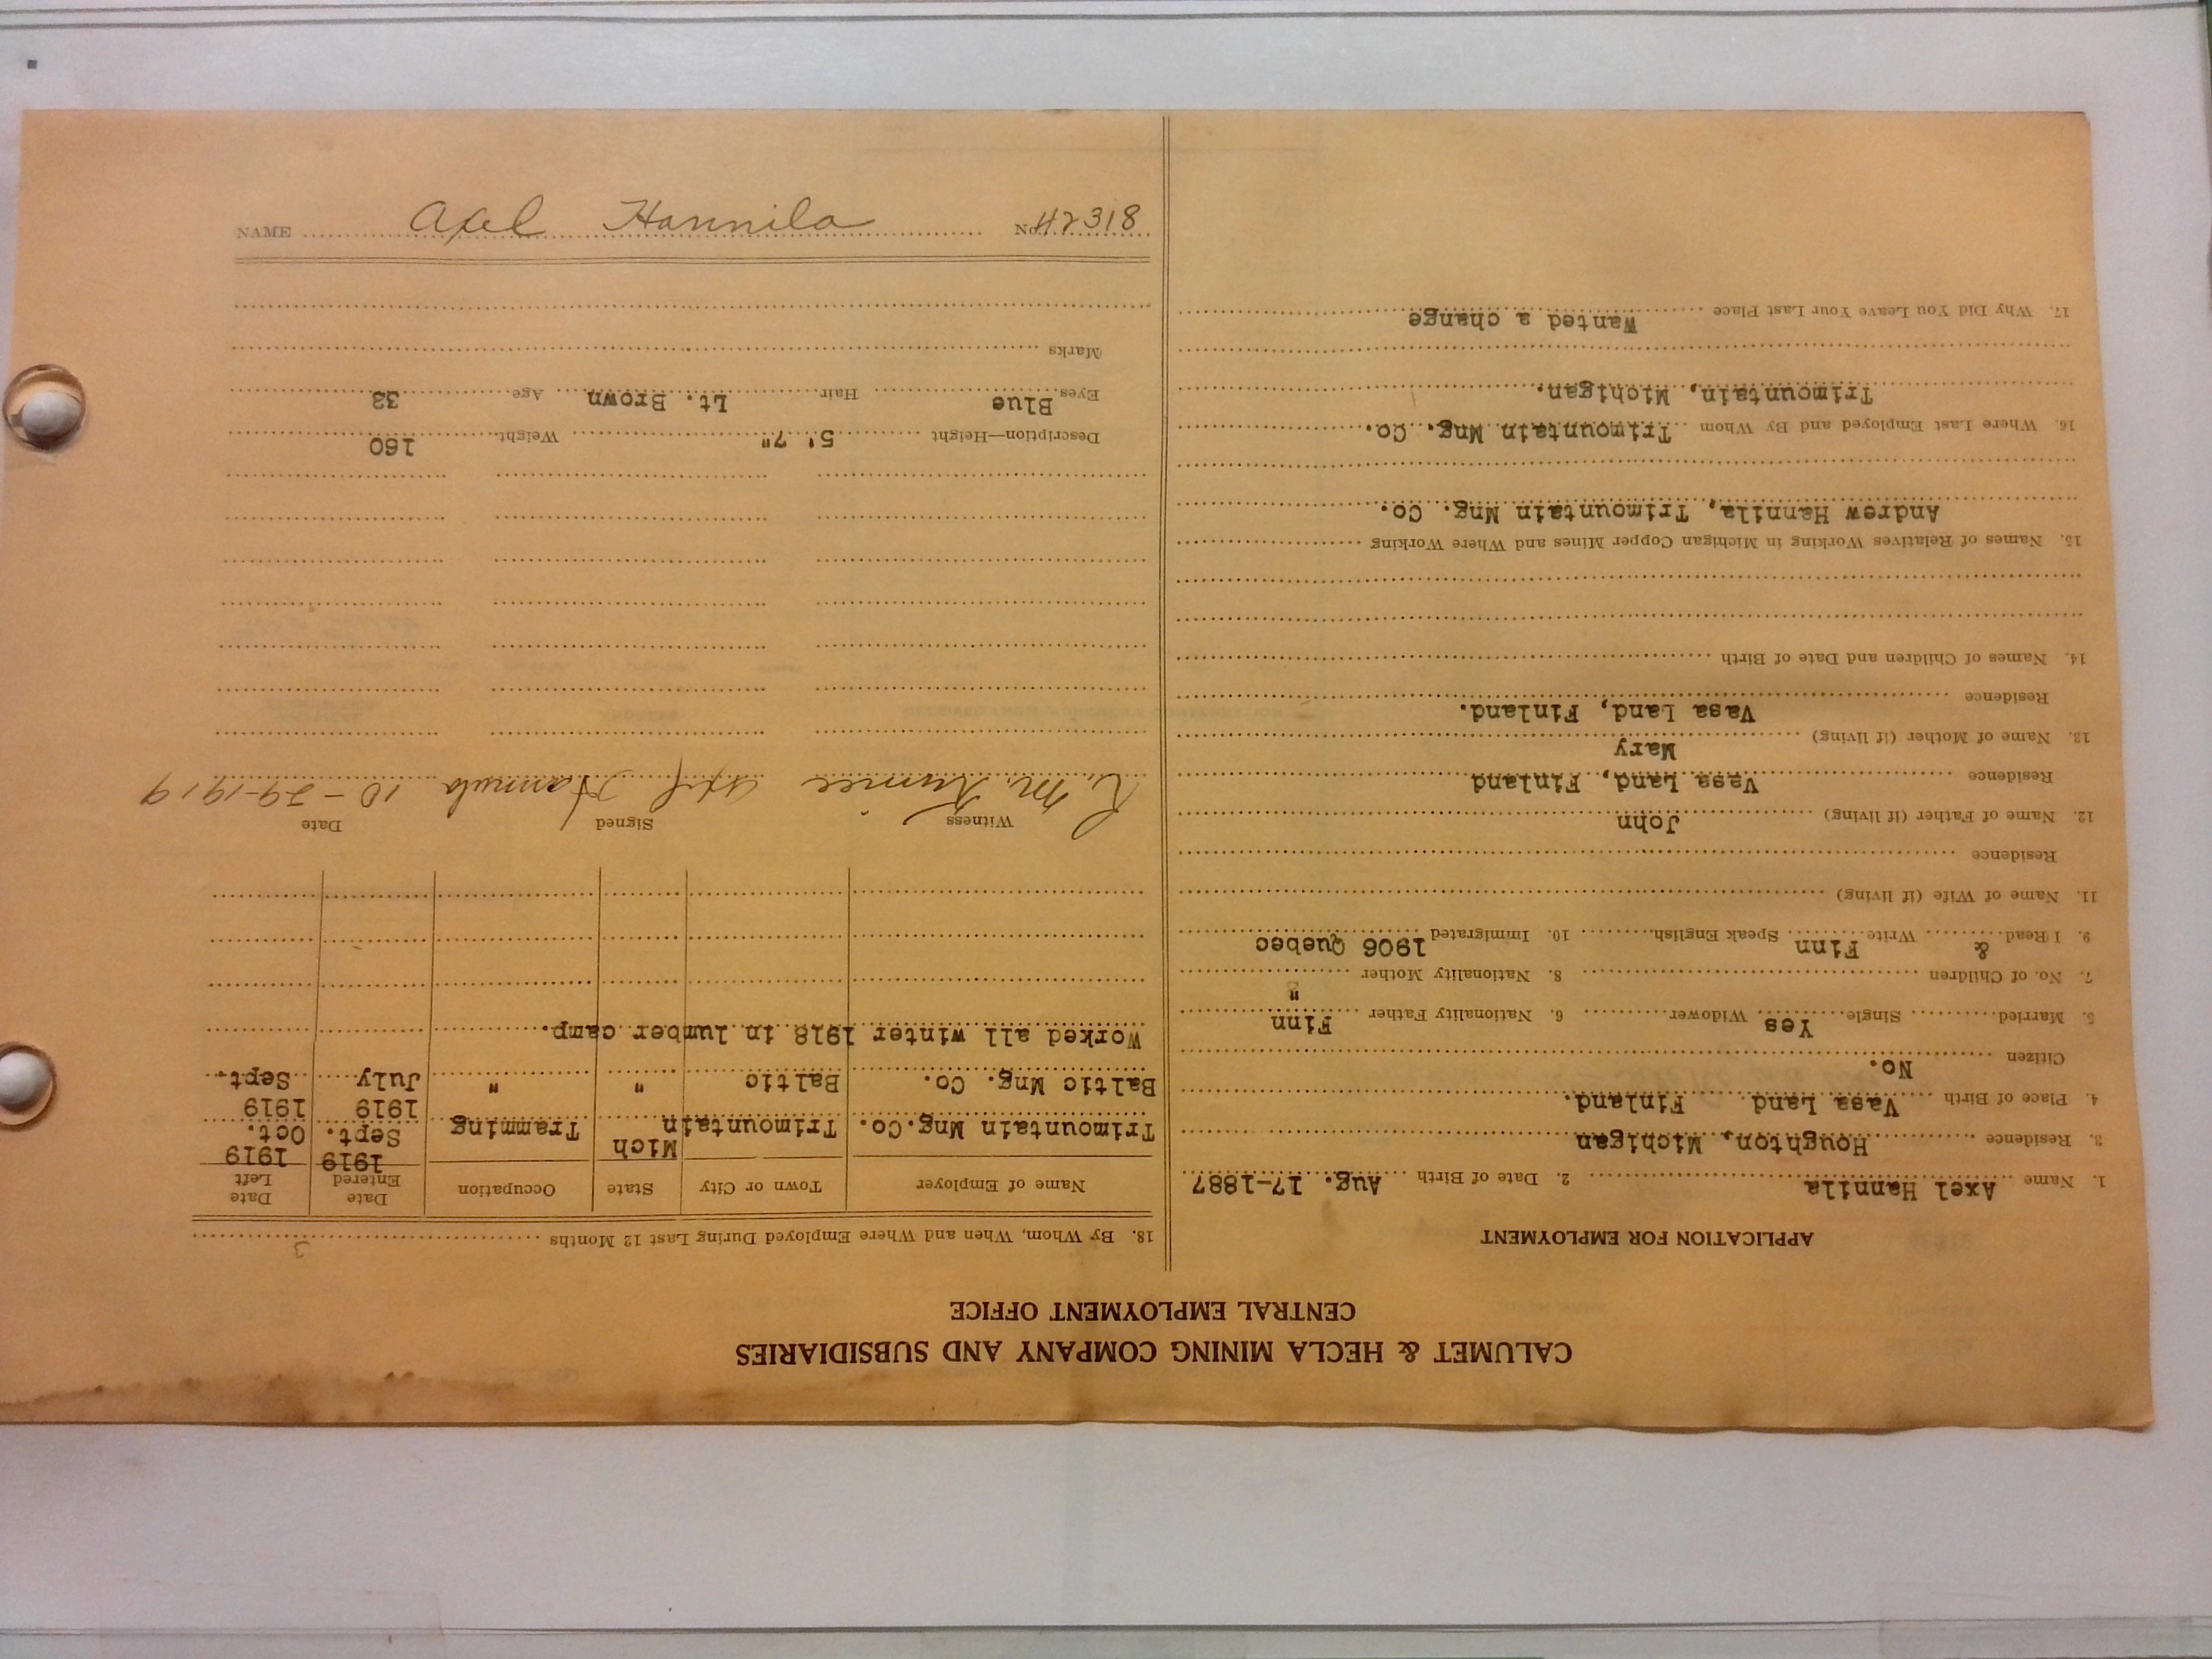 CALUMET & HECLA MINING COMPANY AND SUBSIDIARIES
CENTRAL EMPLOYMENT OFFICE
APPLICATION FOR EMPLOYMENT
1. Name Axel Hannila 2. Date of Birth Aug. 17-1887
3. Residence Houghton, Michigan
4. Place of Birth Vasa Land Finland.
Citizen No.
5. Married Single Yes Widower 6. Nationality Father Finn
7. No. of Children 8. Nationality Mother "
9. I Read & Write Finn Speak English 10. Immigrated 1906 Quebec
11. Name of Wife (if living)
Residence
12. Name of Father (if living) John
Residence Vasa Land, Finland
13. Name of Mother (if living) Mary
Residence Vasa Land, Finland.
14. Names of Children and Date of Birth
15. Names of Relatives Working in Michigan Copper Mines and Where Working
Andrew Hannila, Trimountain Mng. Co.
16. Where Last Employed and By Whom Trimountain Mng. Co.
Trimountain, Michigan.
17. Why Did You Leave Your Last Place Wanted a change
18. By Whom, When and Where Employed During Last 12 Months 3
Name of Employer Town or City State Occupation Date Entered Date Left
1919 1919
Trimountain Mng.Co. Trimountain Mich Tramming Sept. Oct.
1919 1919
Baltic Mng. Co. Baltic " " July Sept.
Worked all winter 1918 in lumber camp.
Witness Signed Date
M. Axel Hannula 10-29-1919
Description—Height 5' 7" Weight 160
Eyes Blue Hair Lt. Brown Age 33
Marks
NAME Axel Hannila No. 42318